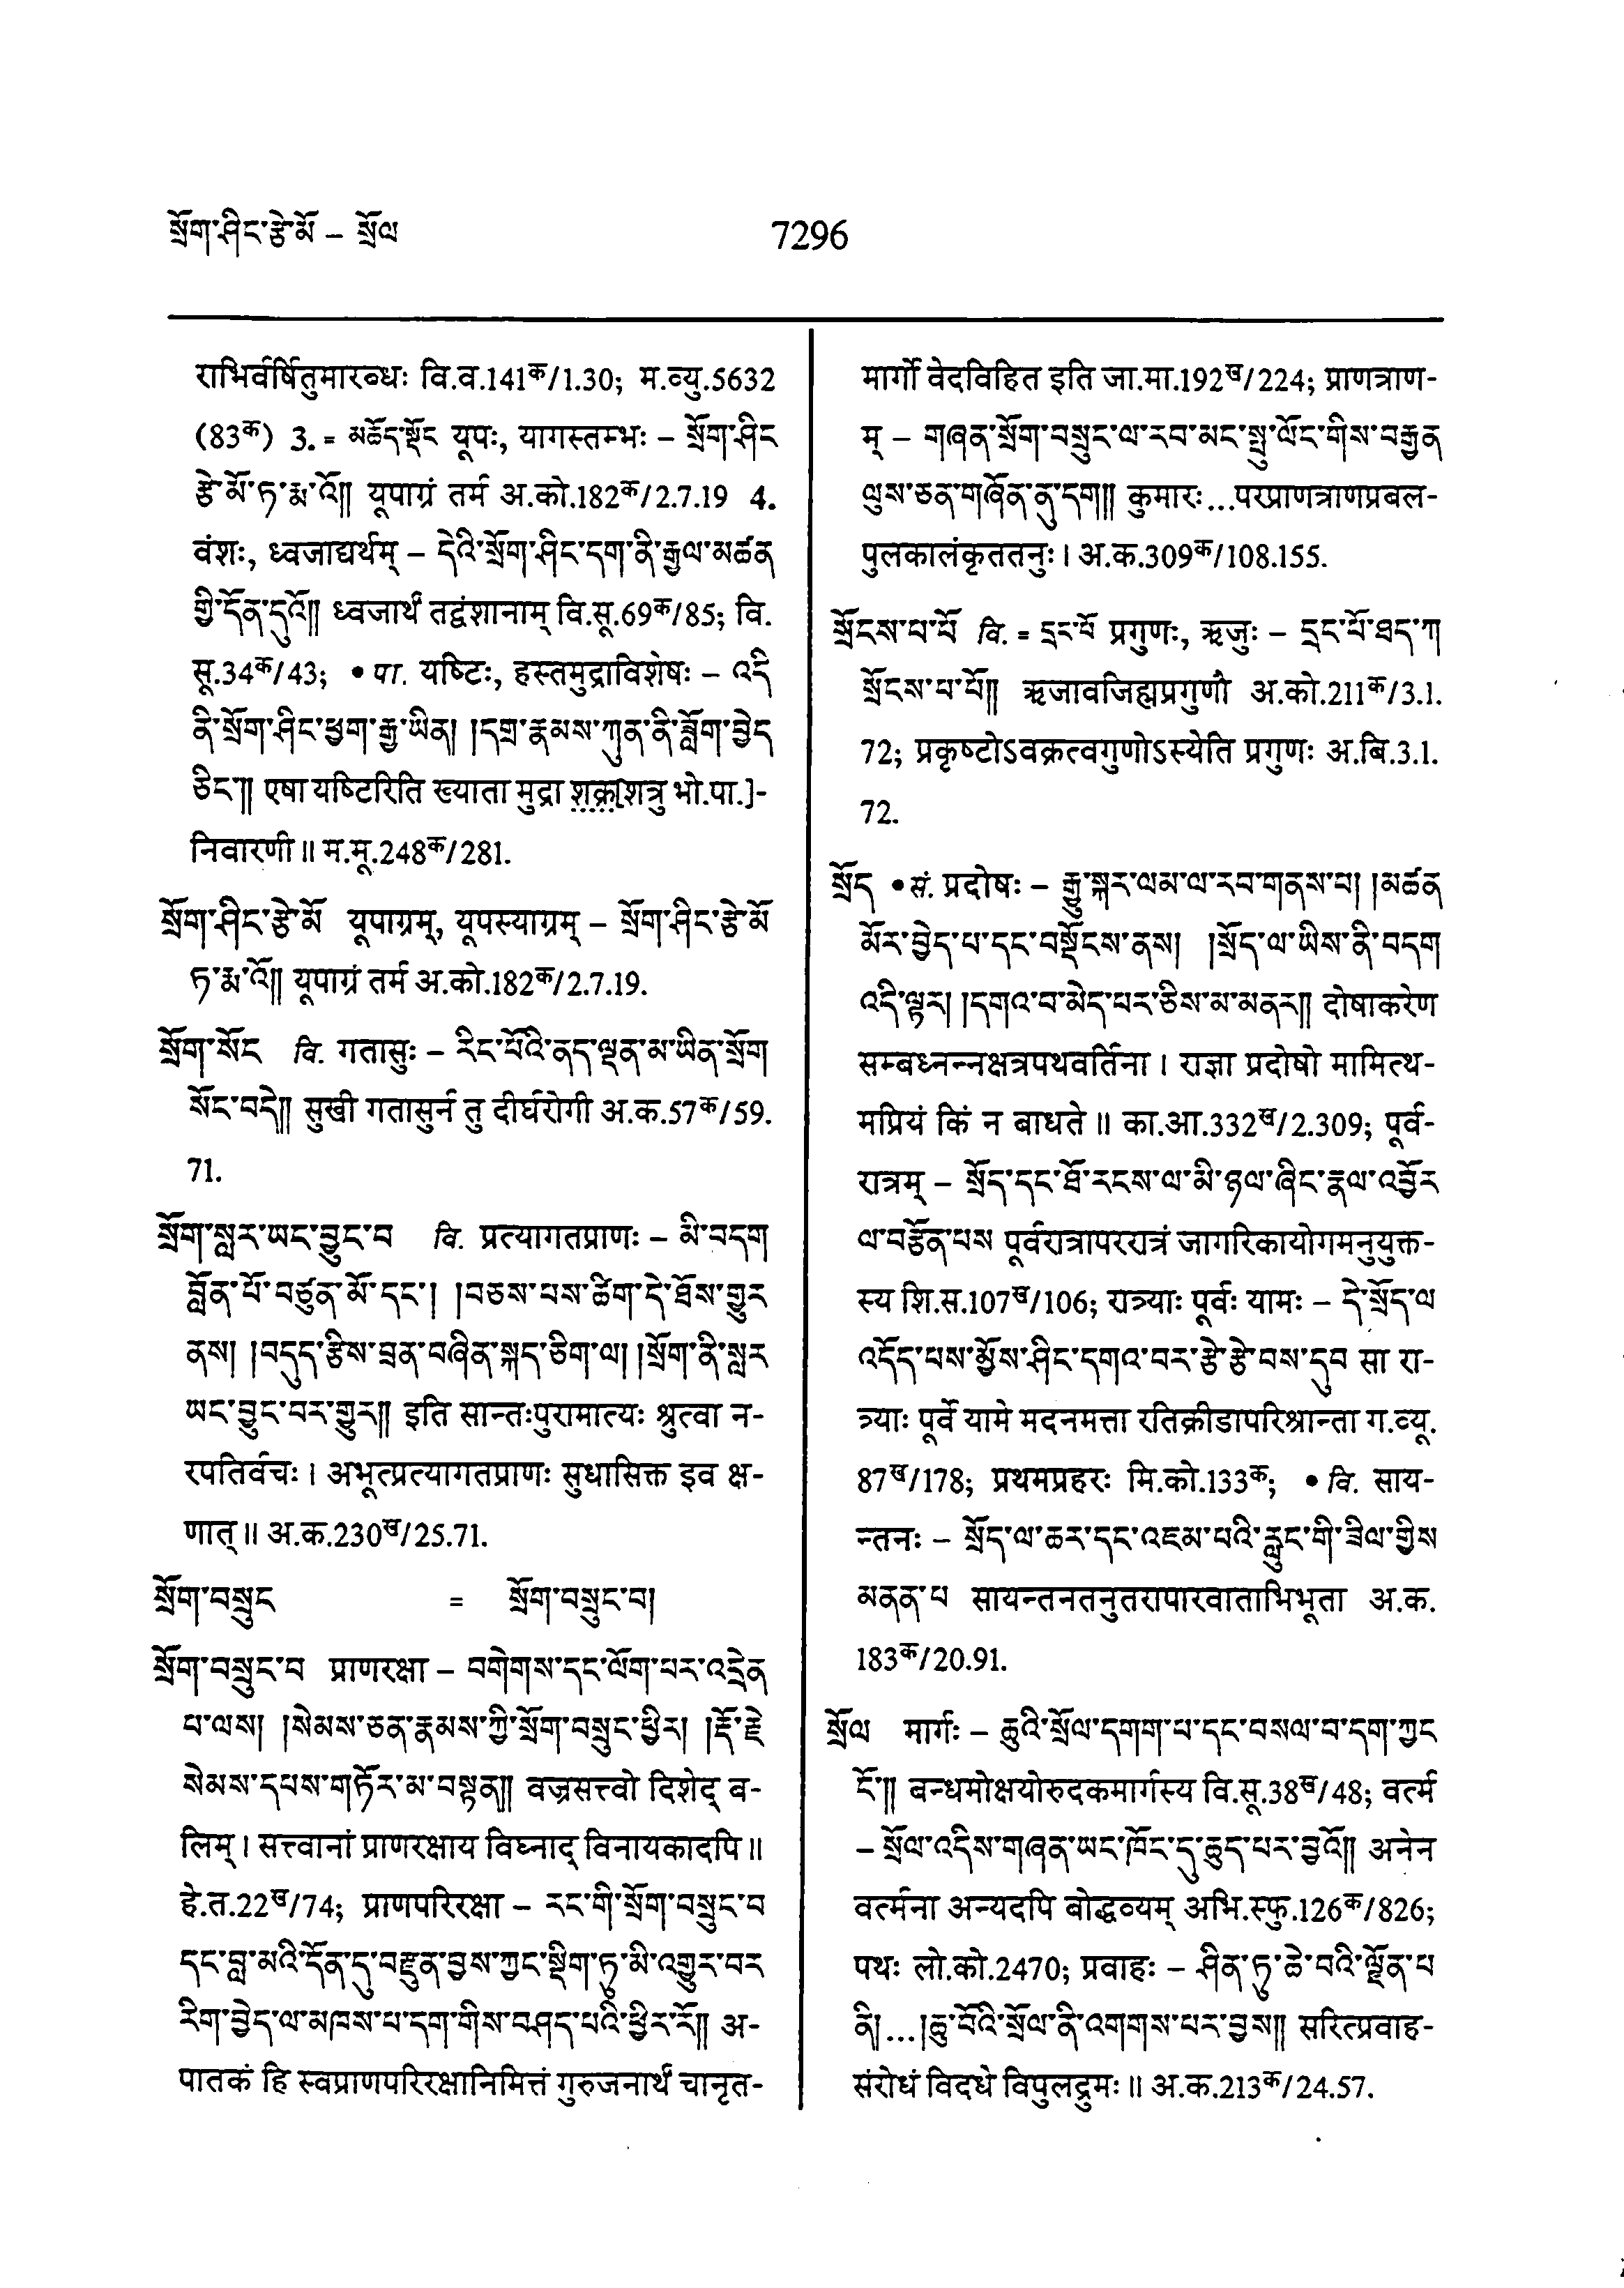 སྲོག་ཤིང་རྩེ་མོ – སྲོལ
7296
राभिर्वर्षितुमारब्धः वि.व.141क/1.30; म.व्यु.5632
(83क) 3. = མཆོད་སྡོང यूपः, यागस्तम्भः – སྲོག་ཤིང
རྩེ་མོ་ཏ་རྨ་འོ།། यूपाग्रं तर्म अ.को.182क/2.7.19 4.
वंशः, ध्वजाद्यर्थम् – དེའི་སྲོག་ཤིང་དག་ནི་རྒྱལ་མཚན
གྱི་དོན་དུའོ།། ध्वजार्थं तद्वंशानाम् वि.सू.69क/85; वि.
सू.34क/43; • पा. यष्टिः, हस्तमुद्राविशेषः – འདི
ནི་སྲོག་ཤིང་ཕྱག་རྒྱ་ཡིན། །དགྲ་རྣམས་ཀུན་ནི་བློག་བྱེད
ཅིང་།། एषा यष्टिरिति ख्याता मुद्रा शक्र[शत्रु भो.पा.]-
निवारणी ॥ म.मू.248क/281.
སྲོག་ཤིང་རྩེ་མོ यूपाग्रम्, यूपस्याग्रम् – སྲོག་ཤིང་རྩེ་མོ
ཏ་རྨ་འོ།། यूपाग्रं तर्म अ.को.182क/2.7.19.
སྲོག་སོང वि. गतासुः – རིང་པོའི་ནད་ལྡན་མ་ཡིན་སྲོག
སོང་བདེ།། सुखी गतासुर्न तु दीर्घरोगी अ.क.57क/59.
71.
སྲོག་སླར་ཡང་བྱུང་བ वि. प्रत्यागतप्राणः – མི་བདག
བློན་པོ་བཙུན་མོ་དང་། །བཅས་པས་ཚིག་དེ་ཐོས་གྱུར
ནས། །བདུད་རྩིས་བྲན་བཞིན་སྐད་ཅིག་ལ། །སྲོག་ནི་སླར
ཡང་བྱུང་བར་གྱུར།། इति सान्तःपुरामात्यः श्रुत्वा न-
रपतिर्वचः । अभूत्प्रत्यागतप्राणः सुधासिक्त इव क्ष-
णात् ॥ अ.क.230ख/25.71.
སྲོག་བསྲུང = སྲོག་བསྲུང་བ།
སྲོག་བསྲུང་བ प्राणरक्षा – བགེགས་དང་ལོག་པར་འདྲེན
པ་ལས། །སེམས་ཅན་རྣམས་ཀྱི་སྲོག་བསྲུང་ཕྱིར། །རྡོ་རྗེ
སེམས་དཔས་གཏོར་མ་བསྟན།། वज्रसत्त्वो दिशेद् ब-
लिम् । सत्त्वानां प्राणरक्षाय विघ्नाद् विनायकादपि ॥
हे.त.22ख/74; प्राणपरिरक्षा – རང་གི་སྲོག་བསྲུང་བ
དང་བླ་མའི་དོན་དུ་བརྫུན་བྱས་ཀྱང་སྡིག་ཏུ་མི་འགྱུར་བར
རིག་བྱེད་ལ་མཁས་པ་དག་གིས་བཤད་པའི་ཕྱིར་རོ།། अ-
पातकं हि स्वप्राणपरिरक्षानिमित्तं गुरुजनार्थं चानृत-
मार्गो वेदविहित इति जा.मा.192ख/224; प्राणत्राण-
म् – གཞན་སྲོག་བསྲུང་ལ་རབ་མང་སྤུ་ལོང་གིས་བརྒྱན
ལུས་ཅན་གཞོན་ནུ་དག།། कुमारः...परप्राणत्राणप्रबल-
पुलकालंकृततनुः । अ.क.309क/108.155.
སྲོངས་པ་པོ वि. = དྲང་པོ प्रगुणः, ऋजुः – དྲང་པོ་ཐད་ཀ
སྲོངས་པ་པོ།། ऋजावजिह्मप्रगुणौ अ.को.211क/3.1.
72; प्रकृष्टोऽवक्रत्वगुणोऽस्येति प्रगुणः अ.बि.3.1.
72.
སྲོད • सं. प्रदोषः – རྒྱུ་སྐར་ལམ་ལ་རབ་གནས་པ། །མཚན
མོར་བྱེད་པ་དང་བསྡོངས་ནས། །སྲོད་ལ་ཡིས་ནི་བདག
འདི་ལྟར། །དགའ་བ་མེད་པར་ཅིས་མ་མནར།། दोषाकरेण
सम्बध्नन्नक्षत्रपथवर्तिना । राज्ञा प्रदोषो मामित्थ-
मप्रियं किं न बाधते ॥ का.आ.332ख/2.309; पूर्व-
रात्रम् – སྲོད་དང་ཐོ་རངས་ལ་མི་ཉལ་ཞིང་རྣལ་འབྱོར
ལ་བརྩོན་པས पूर्वरात्रापररात्रं जागरिकायोगमनुयुक्त-
स्य शि.स.107ख/106; रात्र्याः पूर्वः यामः – དེ་སྲོད་ལ
འདོད་པས་མྱོས་ཤིང་དགའ་བར་རྩེ་རྩེ་བས་དུབ सा रा-
त्र्याः पूर्वे यामे मदनमत्ता रतिक्रीडापरिश्रान्ता ग.व्यू.
87ख/178; प्रथमप्रहरः मि.को.133क; • वि. साय-
न्तनः – སྲོད་ལ་ཆར་དང་འཇམ་པའི་རླུང་གི་ཟིལ་གྱིས
མནན་པ सायन्तनतनुतरापारवाताभिभूता अ.क.
183क/20.91.
སྲོལ मार्गः – ཆུའི་སྲོལ་དགག་པ་དང་བསལ་བ་དག་ཀྱང
ངོ་།། बन्धमोक्षयोरुदकमार्गस्य वि.सू.38ख/48; वर्त्म
– སྲོལ་འདིས་གཞན་ཡང་ཁོང་དུ་ཆུད་པར་བྱའོ།། अनेन
वर्त्मना अन्यदपि बोद्धव्यम् अभि.स्फु.126क/826;
पथः लो.को.2470; प्रवाहः – ཤིན་ཏུ་ཆེ་བའི་ལྗོན་པ
ནི།...།ཆུ་བོའི་སྲོལ་ནི་འགགས་པར་བྱས།། सरित्प्रवाह-
संरोधं विदधे विपुलद्रुमः ॥ अ.क.213क/24.57.